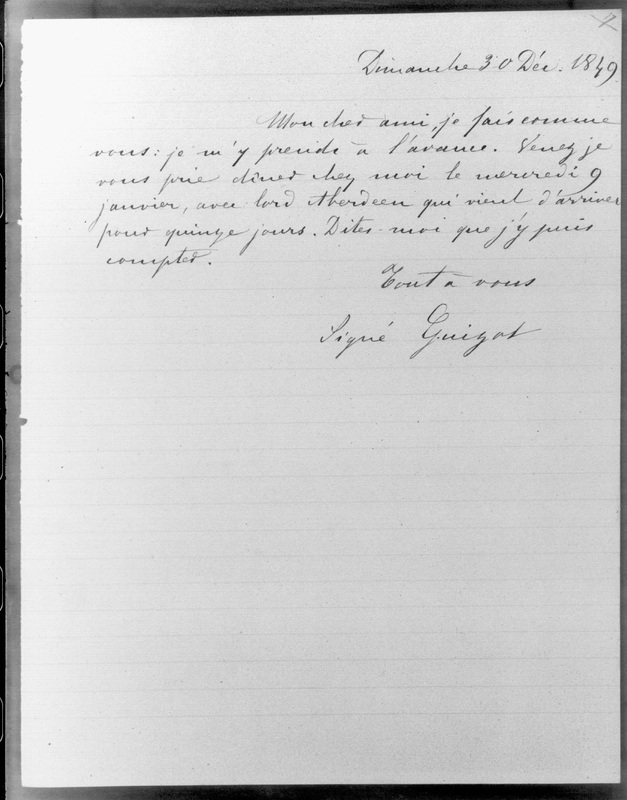 Dimanche 30 Déc. 1849
Mon cher ami, je fais comme
vous : je m'y prends à l'avance. Venez je
vous prie dîner chez moi le mercredi 9
janvier, avec lord Aberdeen qui vient d'arriver
pour quinze jours. Dites-moi que j'y puis
compter.
Tout à vous
Signé Guizot